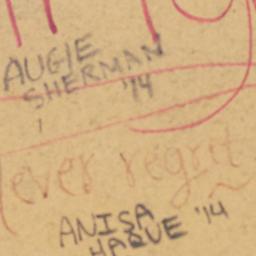 AUGIE
SHERMAN
'14
ever regret
ANISA
HAQUE '14